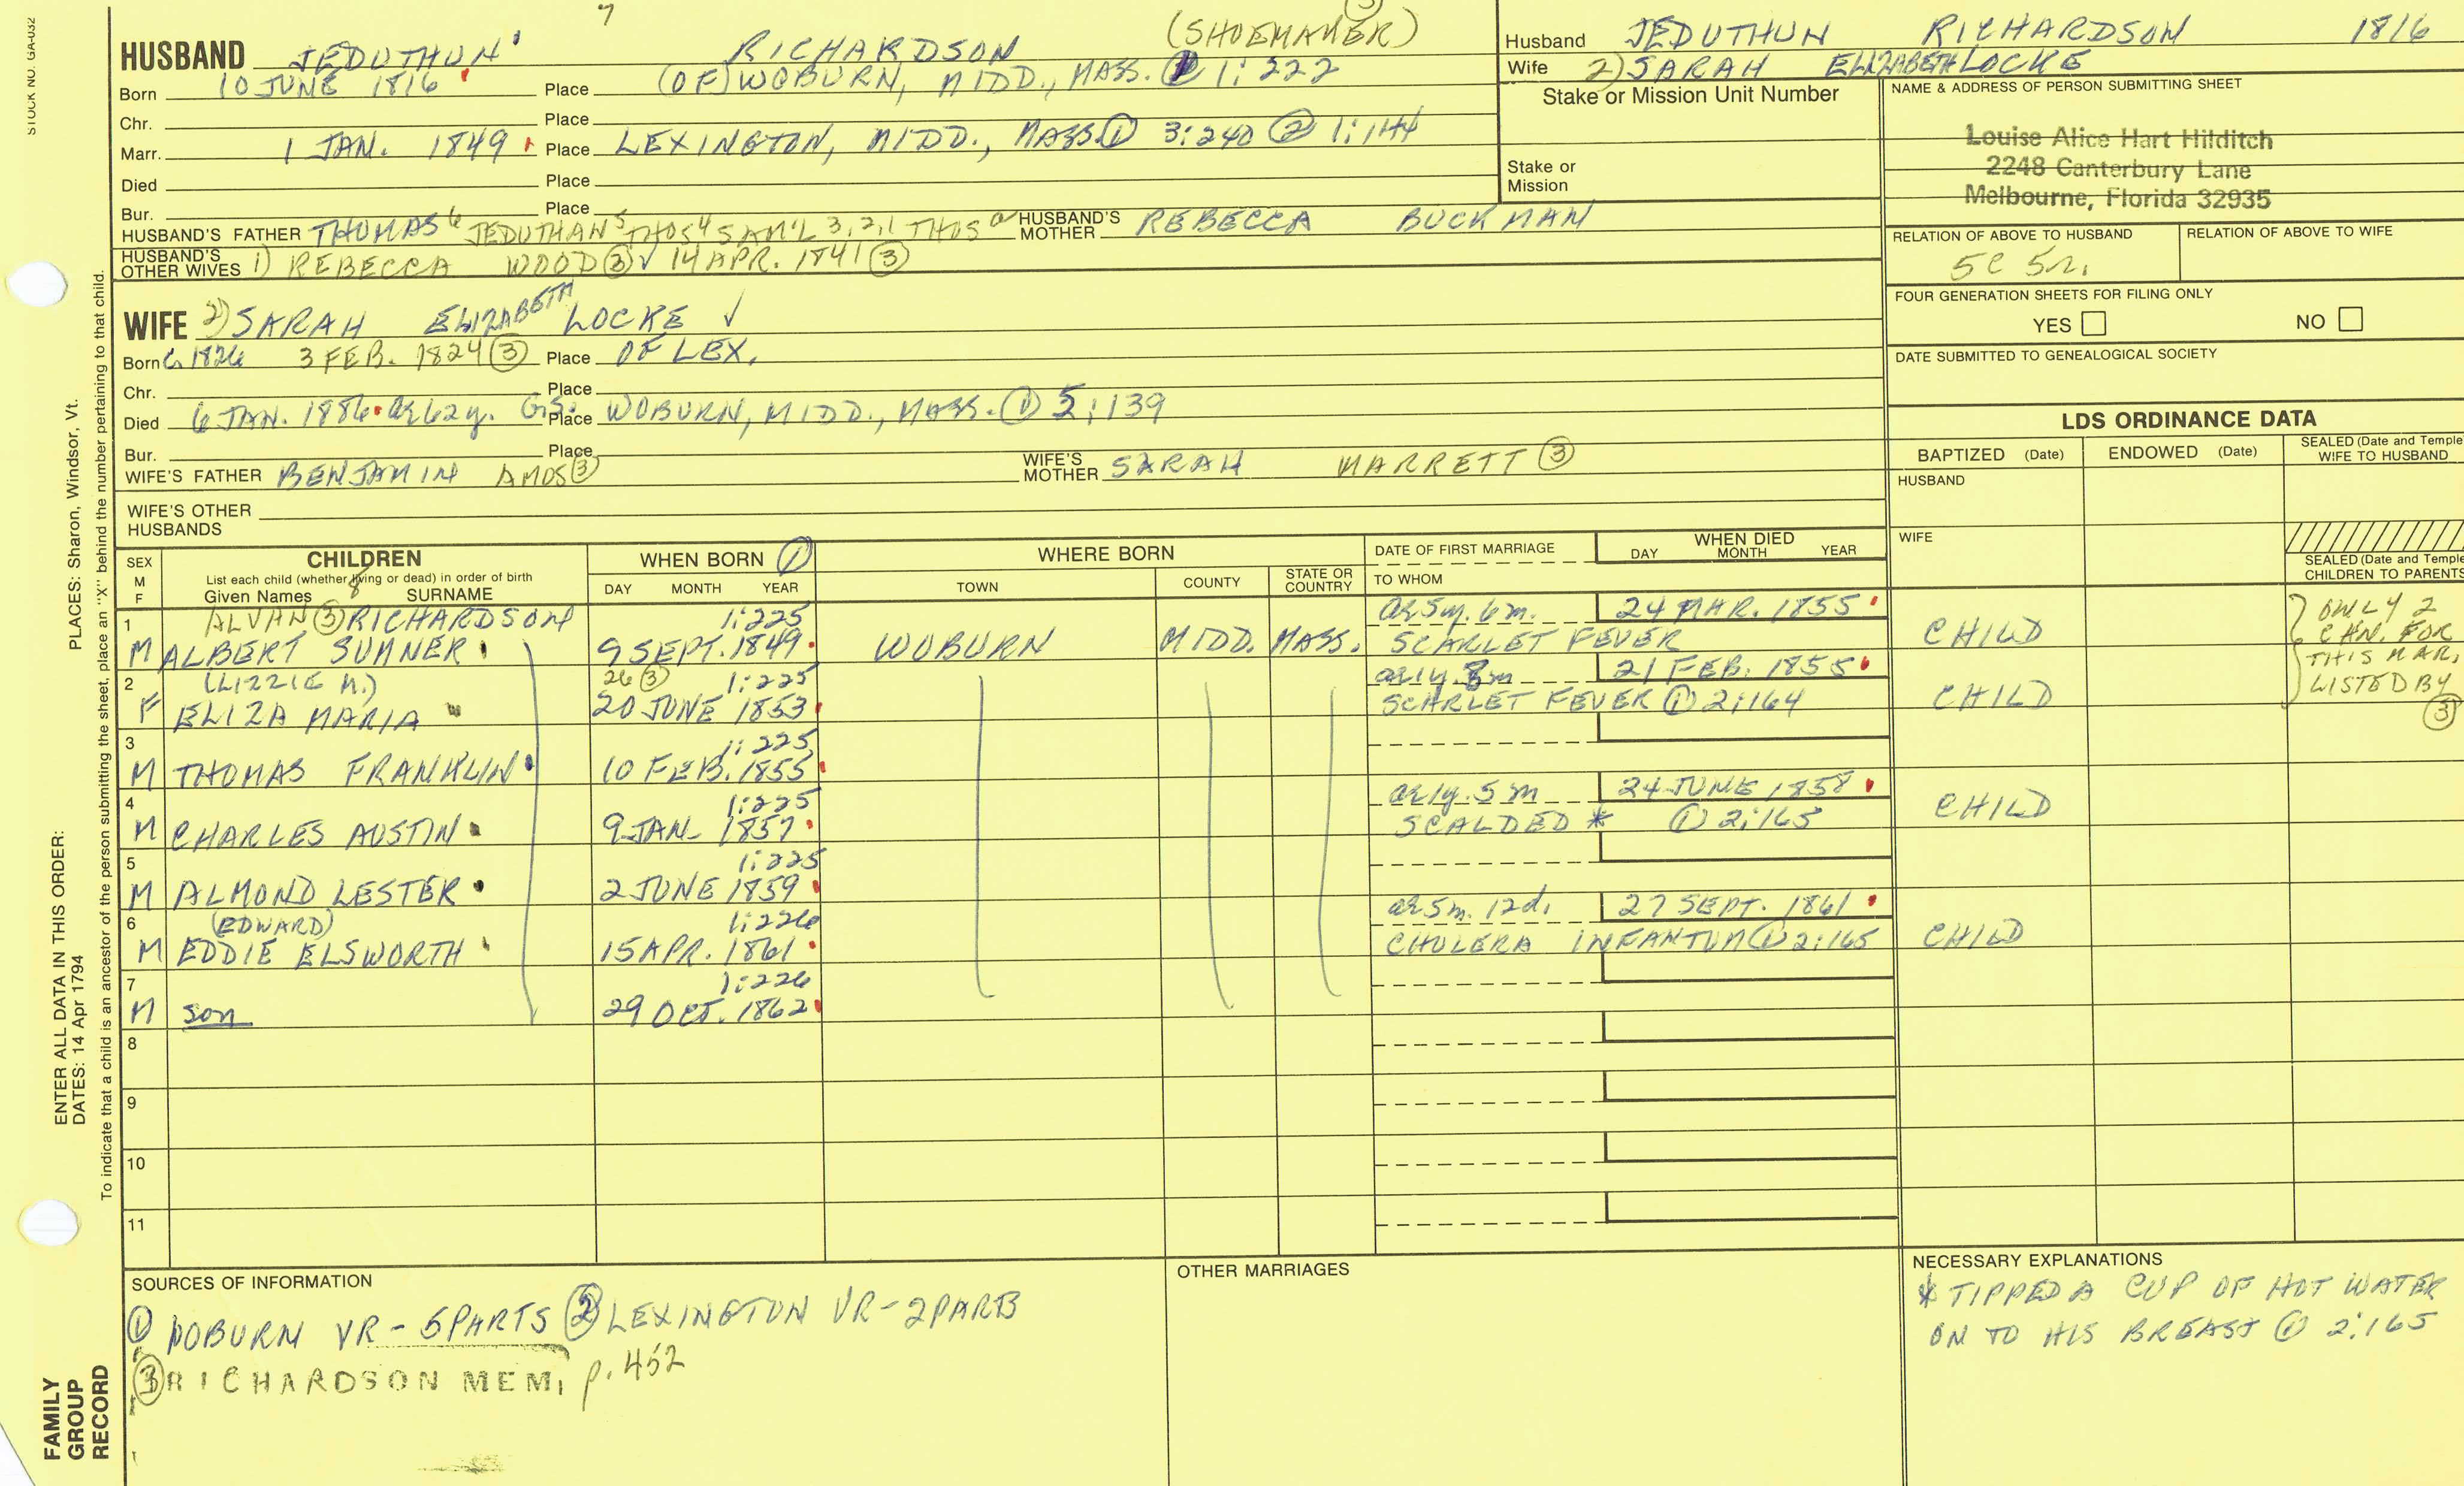 STOCK NO. GA-032
7
HUSBAND JEDUTHUN RICHARDSON (SHOEMAKER) ③
Born 10 JUNE 1816 Place (OF) WOBURN, MIDD., MASS. ① 1:222
Chr. Place
Marr. 1 JAN. 1849 Place LEXINGTON, MIDD., MASS. ① 3:240 ② 1:144
Died Place
Bur. Place
HUSBAND'S FATHER THOMAS⁶ JEDUTHAN⁵ THOS⁴ SAM'L 3,2,1 THOS ᵃ HUSBAND'S MOTHER REBECCA BUCKMAN
HUSBAND'S OTHER WIVES 1) REBECCA WOOD ③ √ 14 APR. 1841 ③
WIFE 2) SARAH ELIZABETH LOCKE √
Born C. 1826 3 FEB. 1824 ③ Place OF LEX.
Chr. Place
Died 6 JAN. 1886 ae 62y. G.S. Place WOBURN, MIDD., MASS. ① 5:139
Bur. Place
WIFE'S FATHER BENJAMIN AMOS ③ WIFE'S MOTHER SARAH MARRETT ③
WIFE'S OTHER HUSBANDS
Husband JEDUTHUN RICHARDSON 1816
Wife 2) SARAH ELIZABETH LOCKE
Stake or Mission Unit Number
Stake or Mission
NAME & ADDRESS OF PERSON SUBMITTING SHEET
Louise Alice Hart Hilditch
2248 Canterbury Lane
Melbourne, Florida 32935
RELATION OF ABOVE TO HUSBAND RELATION OF ABOVE TO WIFE
5C 5r.
FOUR GENERATION SHEETS FOR FILING ONLY
YES NO
DATE SUBMITTED TO GENEALOGICAL SOCIETY
LDS ORDINANCE DATA
BAPTIZED (Date) ENDOWED (Date) SEALED (Date and Temple) WIFE TO HUSBAND
HUSBAND
WIFE
SEALED (Date and Temple) CHILDREN TO PARENTS
SEX M F CHILDREN WHEN BORN ① WHERE BORN DATE OF FIRST MARRIAGE WHEN DIED
List each child (whether living or dead) in order of birth
Given Names 8 SURNAME DAY MONTH YEAR TOWN COUNTY STATE OR COUNTRY TO WHOM DAY MONTH YEAR
1 ALVAN ③ RICHARDSON 1:225 ae 5y. 6m. 24 MAR. 1855
M ALBERT SUMNER 9 SEPT. 1849 WOBURN MIDD. MASS. SCARLET FEVER CHILD
2 (LIZZIE M.) 26 ③ 1:225 ae 1y. 8m 21 FEB. 1855
F ELIZA MARIA 20 JUNE 1853 SCARLET FEVER ① 2:164 CHILD
ONLY 2
CHN. FOR
THIS MAR.
LISTED BY
③
3 1:225
M THOMAS FRANKLIN 10 FEB. 1855
4 1:225 ae 1y. 5m 24 JUNE 1858
M CHARLES AUSTIN 9 JAN. 1857 SCALDED * ① 2:165 CHILD
5 1:225
M ALMOND LESTER 2 JUNE 1859
6 (EDWARD) 1:226 ae 5m. 12d. 27 SEPT. 1861
M EDDIE ELSWORTH 15 APR. 1861 CHOLERA INFANTUM ① 2:165 CHILD
7 1:226
M son 29 OCT. 1862
8
9
10
11
SOURCES OF INFORMATION
① WOBURN VR - 5 PARTS ② LEXINGTON VR - 2 PARTS
③ RICHARDSON MEM, p. 452
OTHER MARRIAGES
NECESSARY EXPLANATIONS
* TIPPED A CUP OF HOT WATER
ON TO HIS BREAST ① 2:165
ENTER ALL DATA IN THIS ORDER:
DATES: 14 Apr 1794 PLACES: Sharon, Windsor, Vt.
To indicate that a child is an ancestor of the person submitting the sheet, place an "X" behind the number pertaining to that child.
FAMILY
GROUP
RECORD